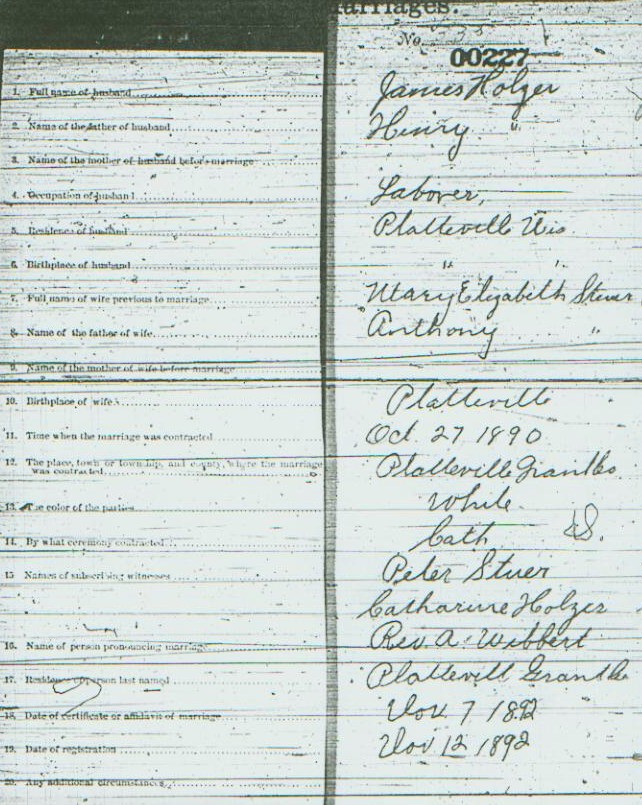 Marriages.
No. 00227
1. Full name of husband James Holzer
2. Name of the father of husband Henry "
3. Name of the mother of husband before marriage
4. Occupation of husband Laborer,
5. Residence of husband Platteville Wis
6. Birthplace of husband " "
7. Full name of wife previous to marriage Mary Elizabeth Stuer
8. Name of the father of wife Anthony "
9. Name of the mother of wife before marriage
10. Birthplace of wife Platteville
11. Time when the marriage was contracted Oct 27 1890
12. The place, town or township, and county, where the marriage
was contracted Platteville Grant Co
13. The color of the parties White
14. By what ceremony contracted Cath
15 Names of subscribing witnesses Peter Stuer
Catharine Holzer
16. Name of person pronouncing marriage Rev. A. Wibbert
17. Residence of person last named Plattevill Grant Co
18. Date of certificate or affidavit of marriage Nov 7 1892
19. Date of registration Nov 12 1892
20. Any additional circumstances